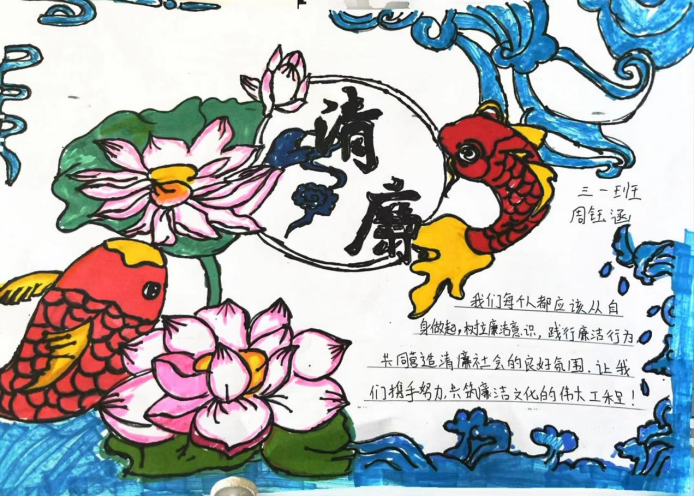 清
廉
三一班
周钰涵
我们每个人都应该从自
身做起,树立廉洁意识,践行廉洁行为,
共同营造清廉社会的良好氛围,让我
们携手努力,共筑廉洁文化的伟大工程!